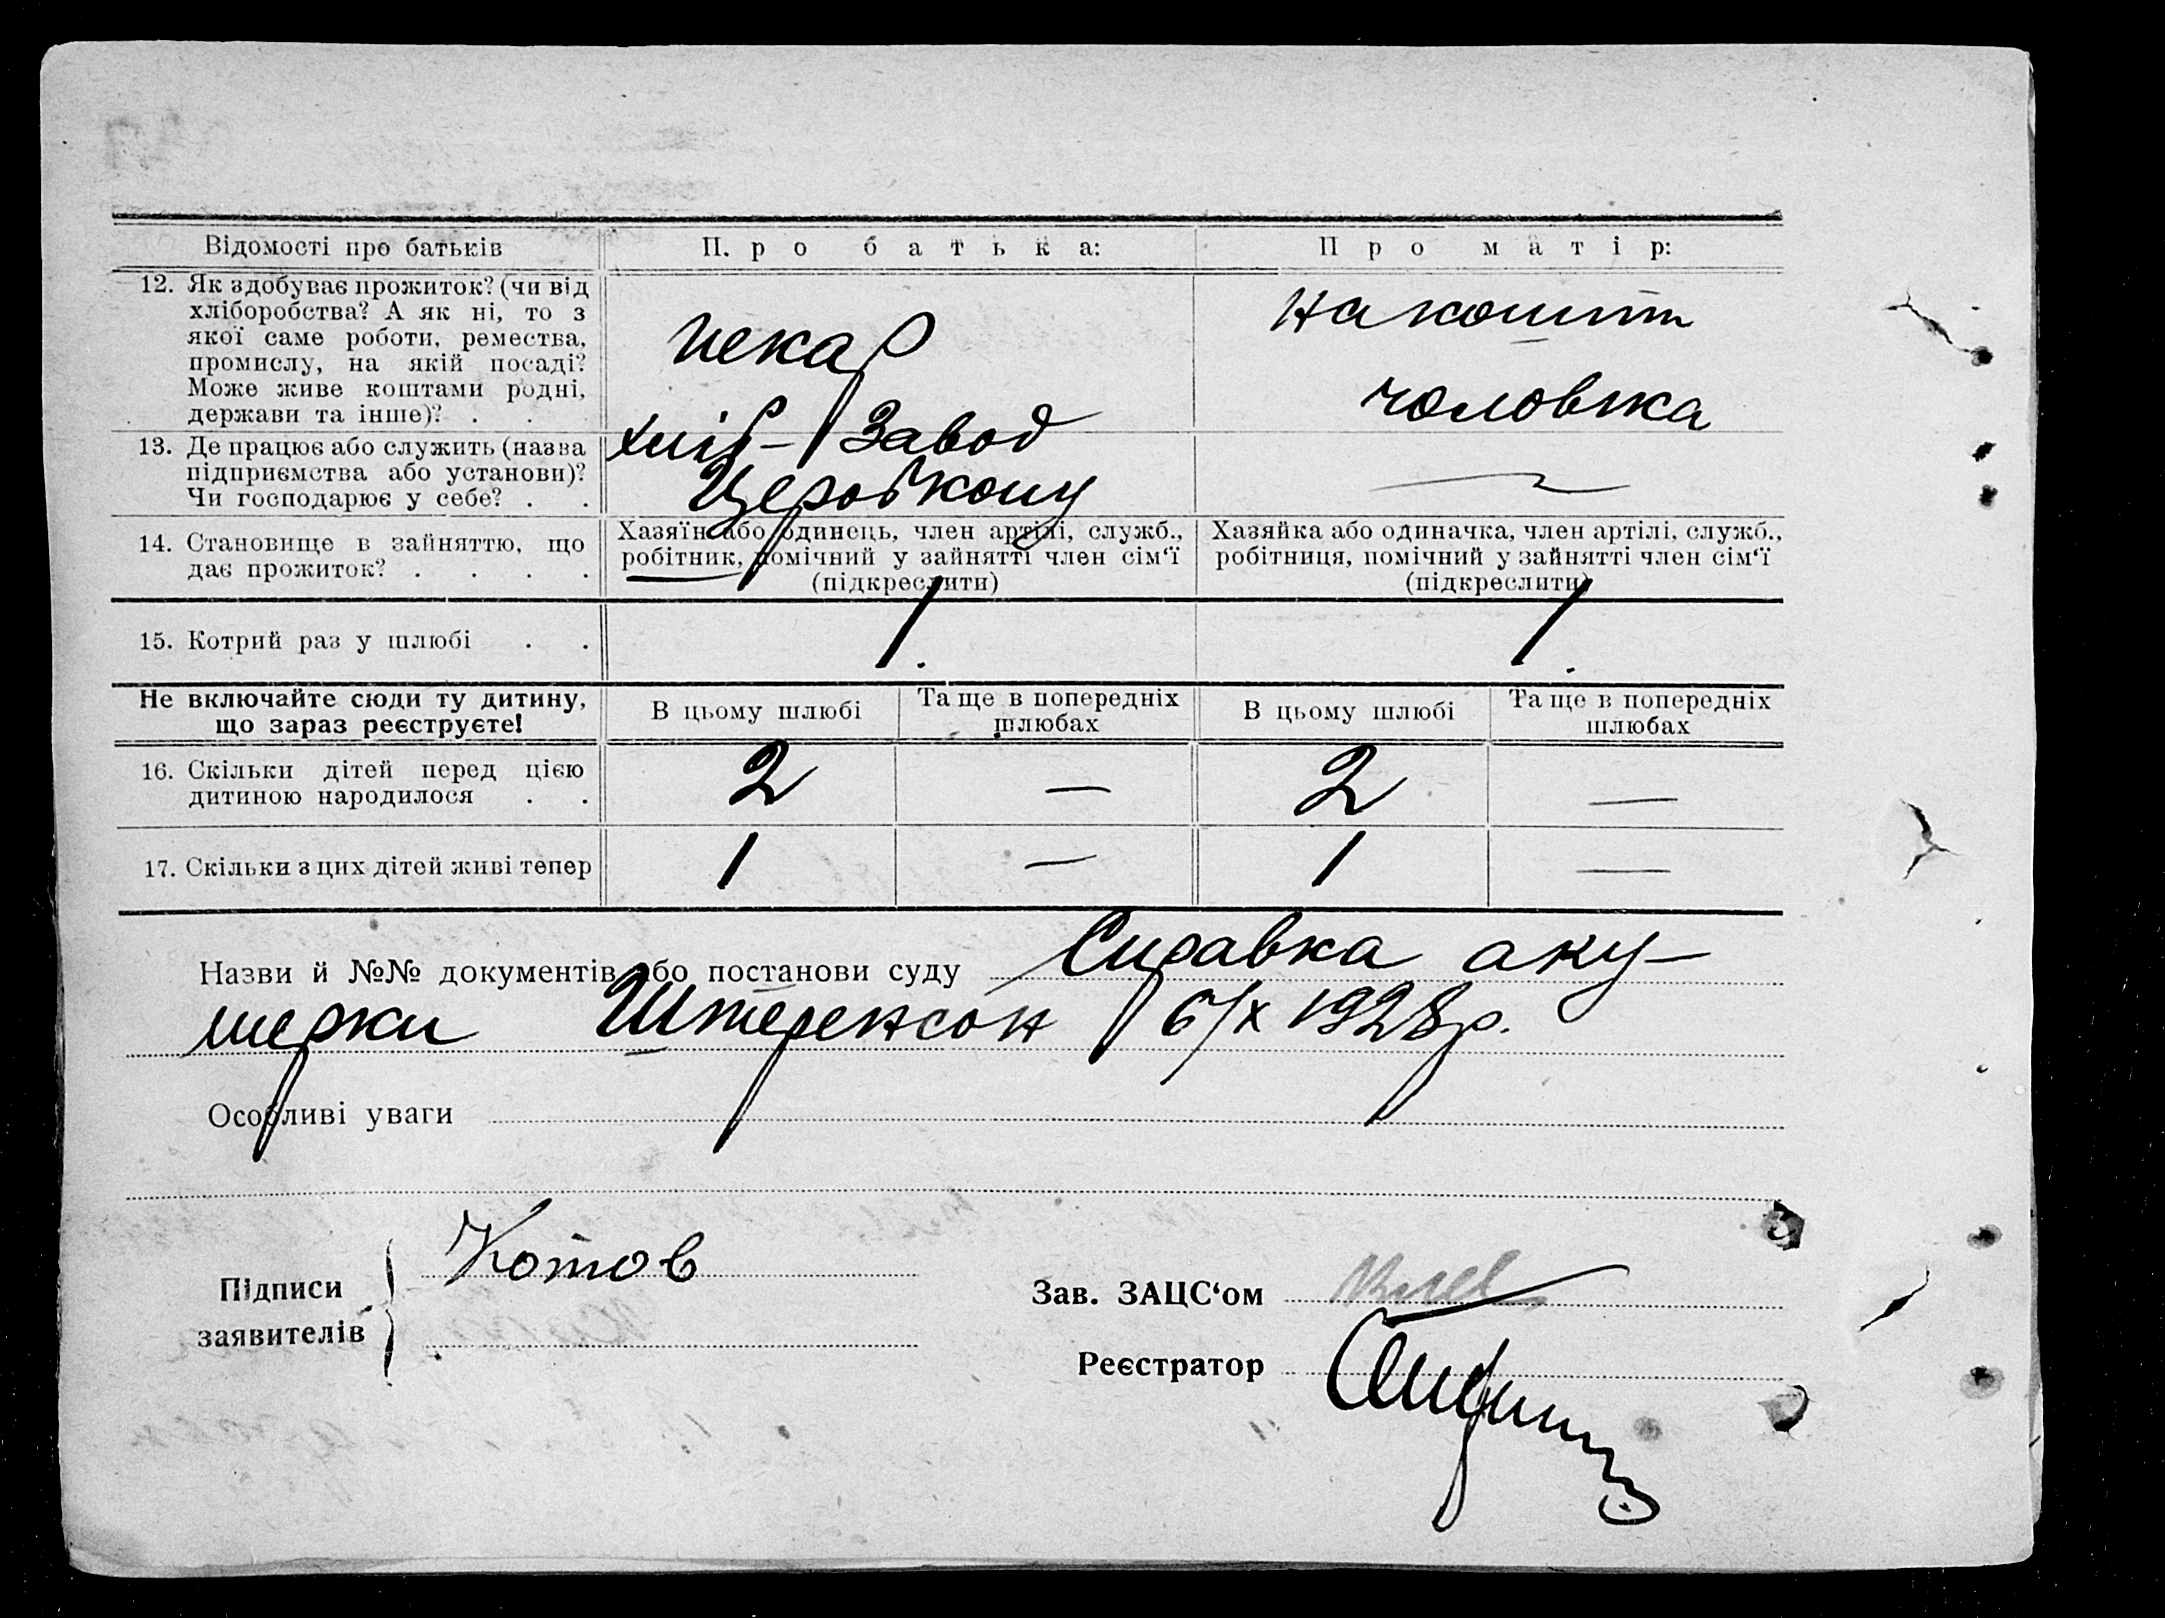 Відомості про батьків
П. р о б а т ь к а:
П р о м а т і р:
12. Як здобуває прожиток? (чи від
хліборобства? А як ні, то з
якої саме роботи, ремества,
промислу, на якій посаді?
Може живе коштами родні,
держави та інше)? . . .
пекар
на кошти
чоловіка
13. Де працює або служить (назва
підприємства або установи)?
Чи господарює у себе? . .
хліб-Завод
Церобкопу
—
14. Становище в зайняттю, що
дає прожиток? . . . .
Хазяїн або одинець, член артілі, служб.,
робітник, помічний у зайнятті член сім‘ї
(підкреслити)
Хазяйка або одиначка, член артілі, служб.,
робітниця, помічний у зайнятті член сім‘ї
(підкреслити)
15. Котрий раз у шлюбі . .
1.
1.
Не включайте сюди ту дитину,
що зараз реєструєте!
В цьому шлюбі
Та ще в попередніх
шлюбах
В цьому шлюбі
Та ще в попередніх
шлюбах
16. Скільки дітей перед цією
дитиною народилося . .
2 — 2 —
17. Скільки з цих дітей живі тепер
1 — 1 —
Назви й №№ документів або постанови суду Справка аку-
шерки Штеренсон 6/X 1928р.
Особливі уваги
Підписи
заявителів
Котов
Зав. ЗАЦС‘ом
Реєстратор